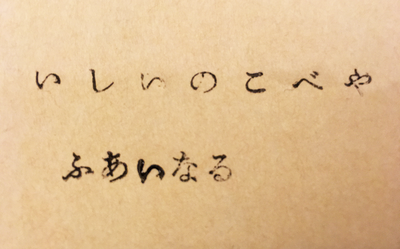 いしいのこべや
ふあいなる